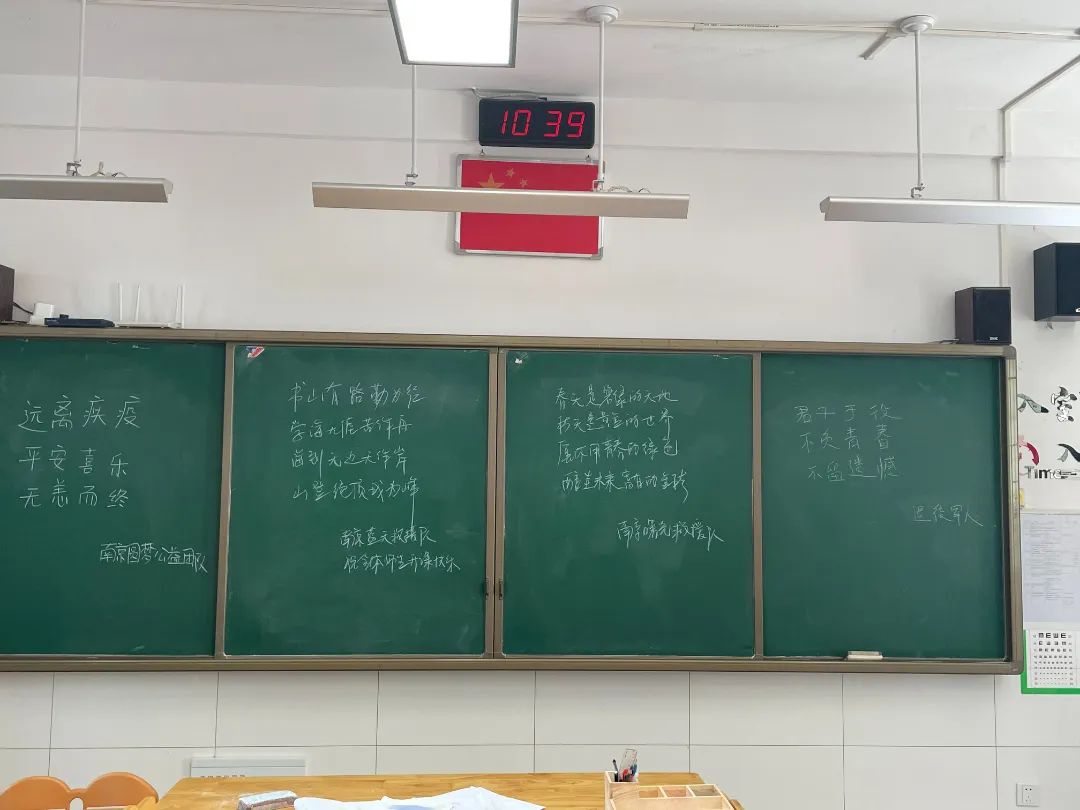 10 39
远离疾疫
平安喜乐
无恙而终
南京圆梦公益团队
书山有路勤为径
学海无涯苦作舟
海到无边天作岸
山登绝顶我为峰
南京蓝天救援队
祝全体师生开课快乐
春天是常绿的天地
秋天是黄金的世界
愿你用青春的绿色
南京曙光救援队
若干手投
不负青春
不留遗憾
退役军人
Time